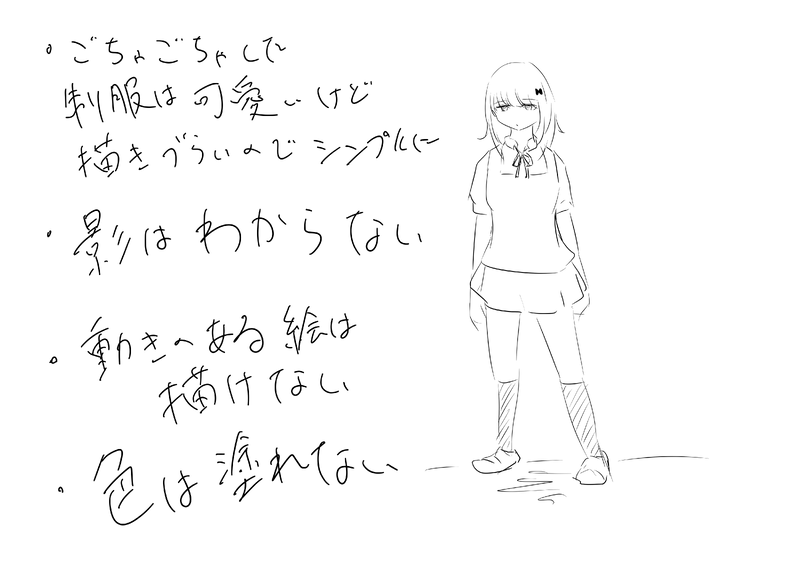 ・ごちゃごちゃした
制服は可愛いけど
描きづらいのでシンプルに
・影はわからない
・動きのある絵は
描けない
・色は塗れない